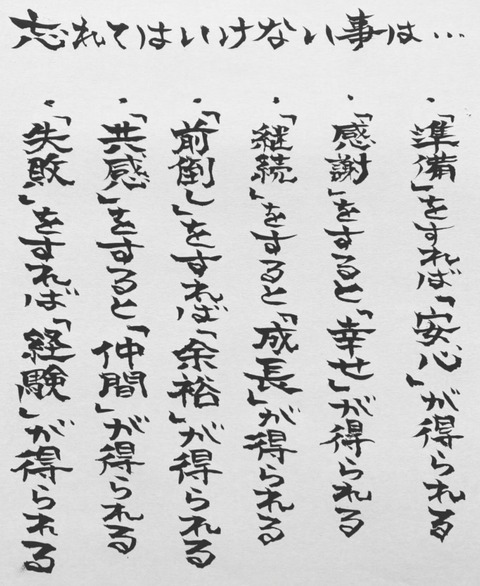 忘れてはいけない事は…
・「準備」をすれば「安心」が得られる
・「感謝」をすると「幸せ」が得られる
・「継続」をすると「成長」が得られる
・「前倒し」をすれば「余裕」が得られる
・「共感」をすると「仲間」が得られる
・「失敗」をすれば「経験」が得られる